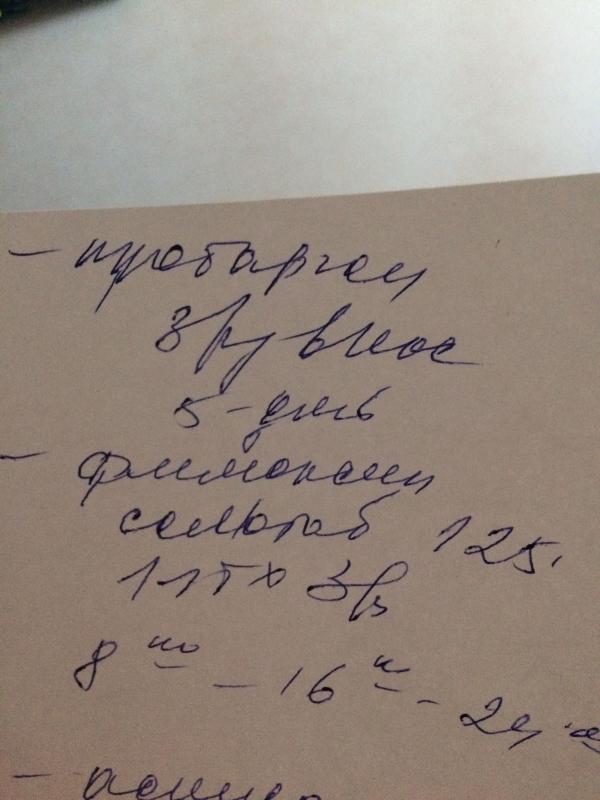 - протаргол
3 р в нос
5 - дней
- флемоксин
солютаб 125.
1 т х 3 р
8 - 16 - 24
-